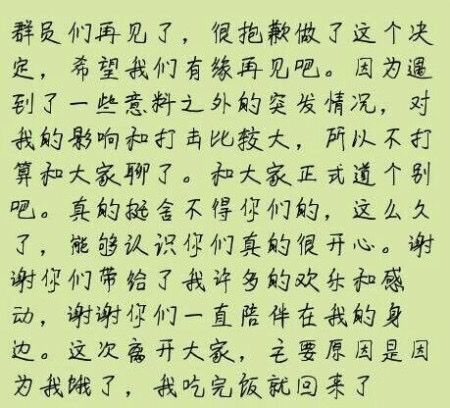 群员们再见了，很抱歉做了这个决
定，希望我们有缘再见吧。因为遇
到了一些意料之外的突发情况，对
我的影响和打击比较大，所以不打
算和大家聊了。和大家正式道个别
吧。真的挺舍不得你们的，这么久
了，能够认识你们真的很开心。谢
谢你们带给了我许多的欢乐和感
动，谢谢你们一直陪伴在我的身
边。这次离开大家，主要原因是因
为我饿了，我吃完饭就回来了